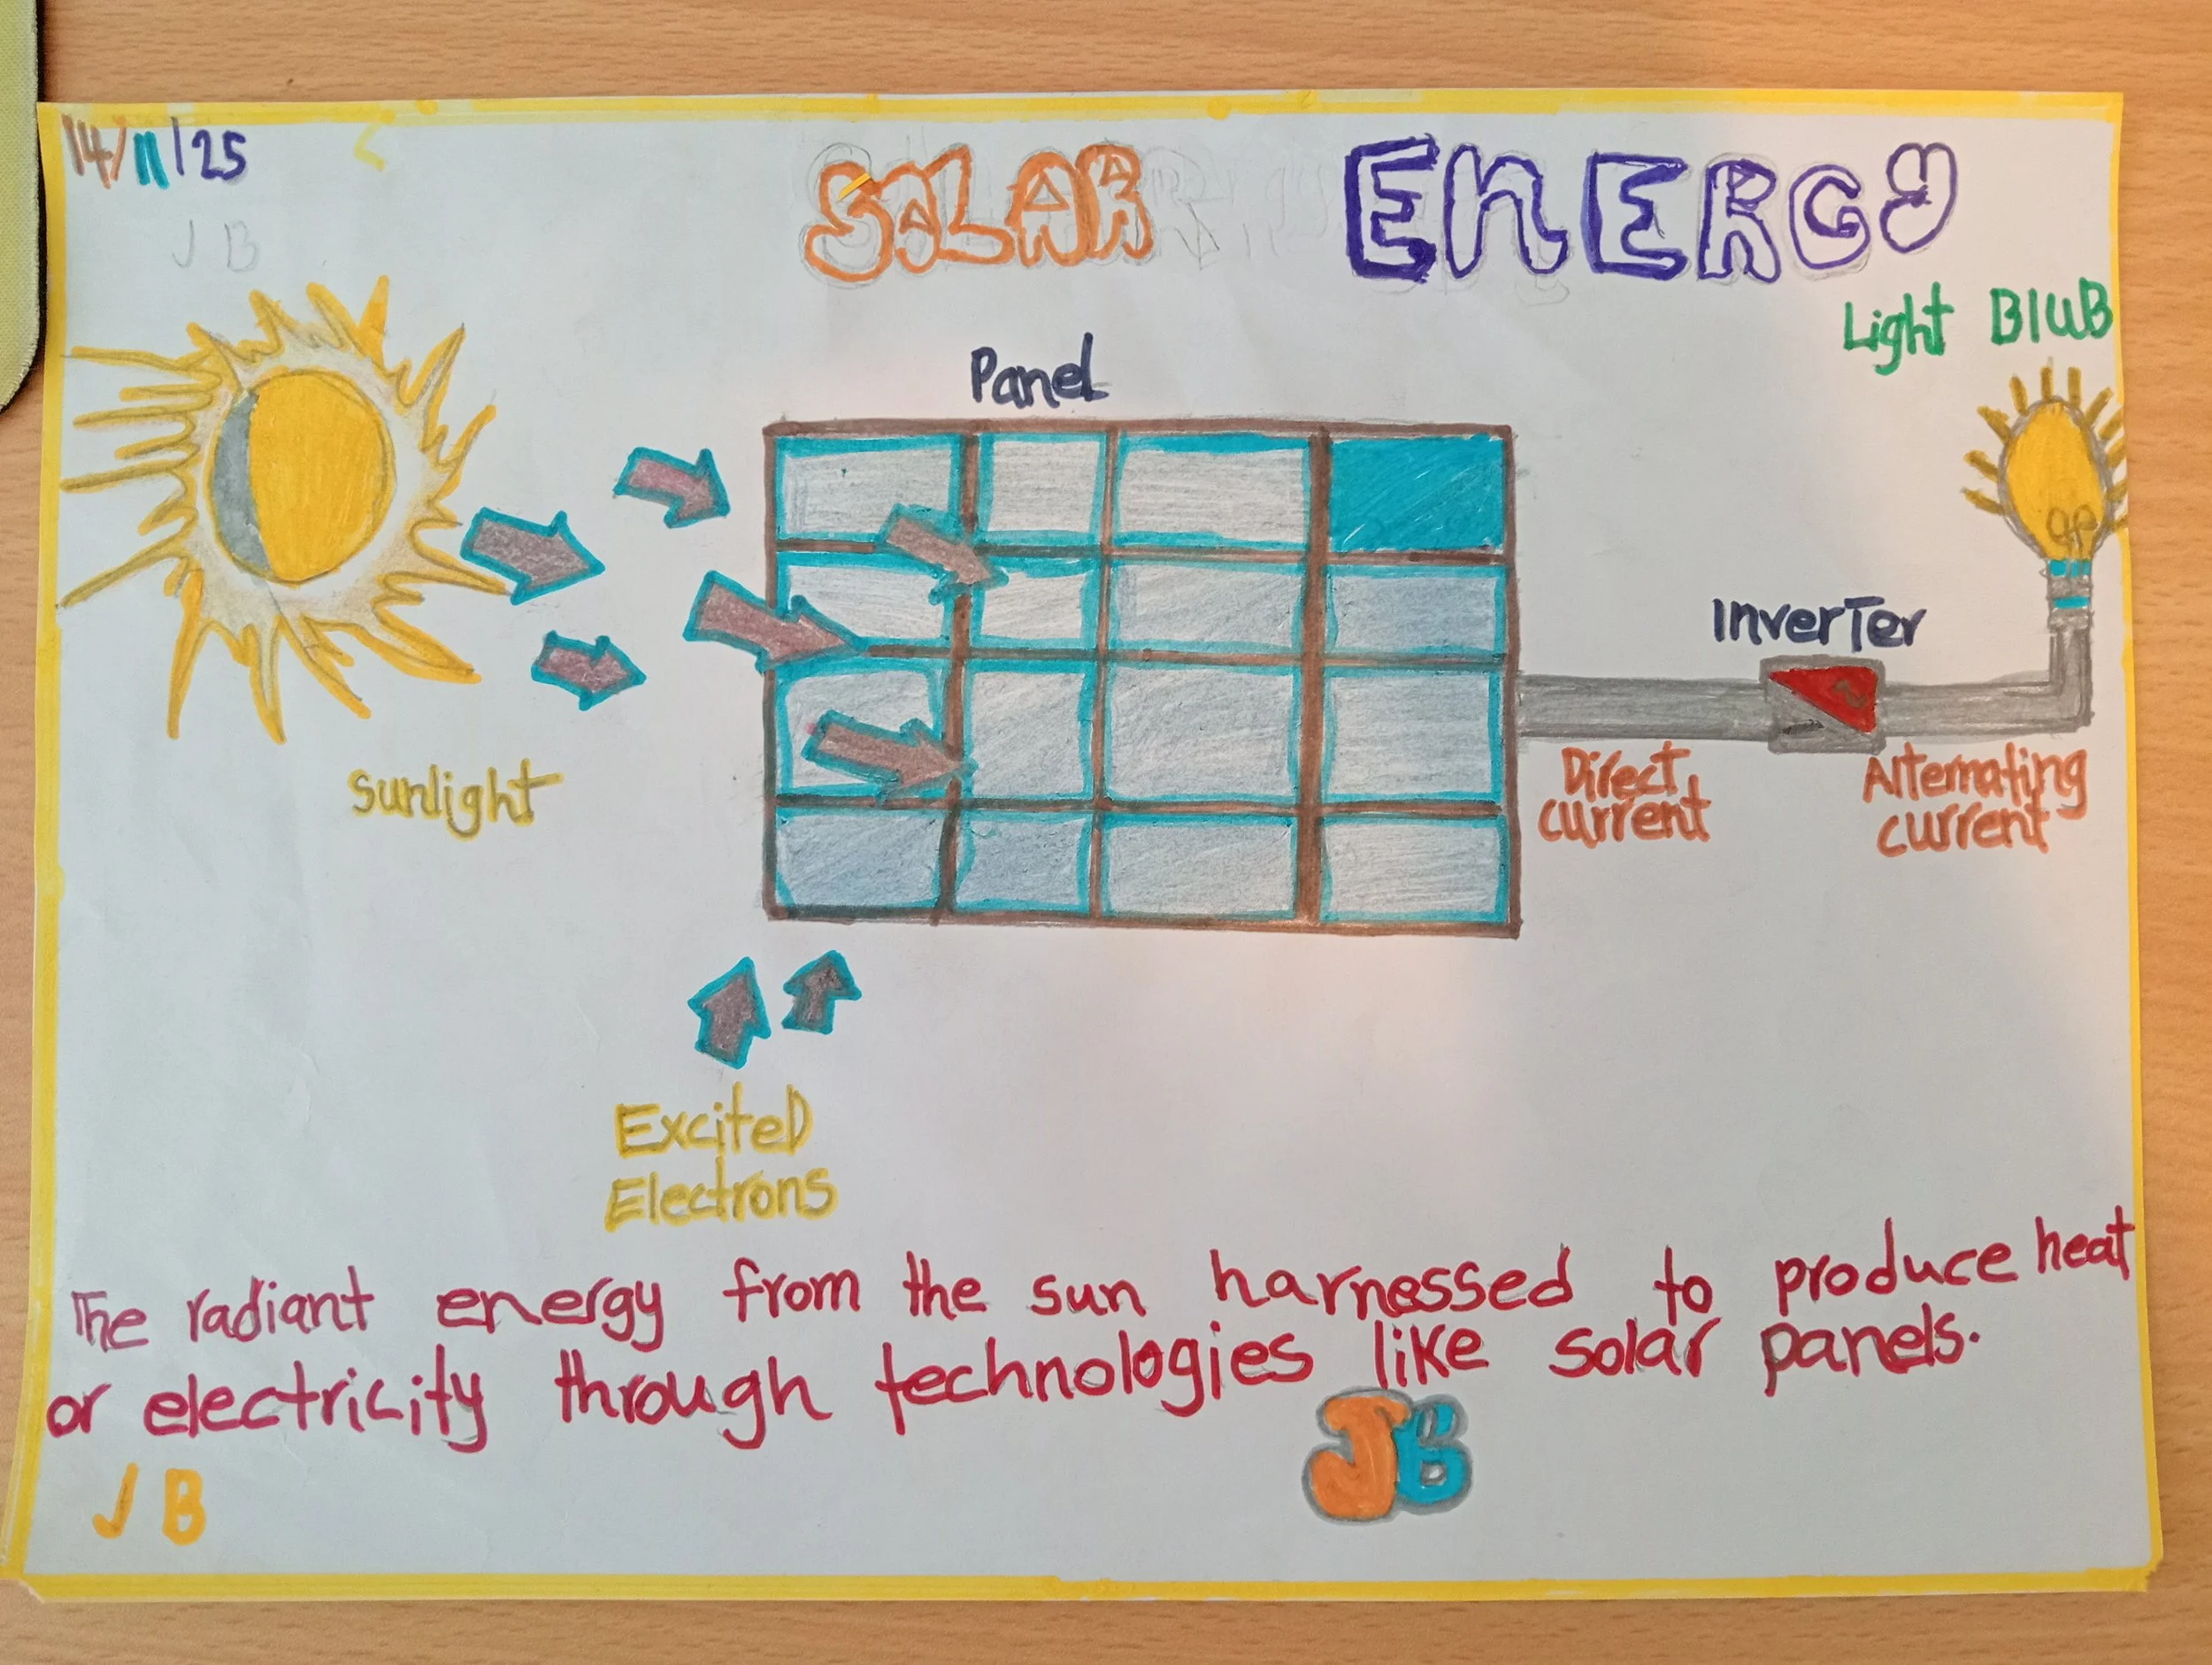 14/11/25
J B
SOLAR ENERGY
Light BlUB
Panel
InverTer
Sunlight
Direct
current
Alternating
current
ExciteD
Electrons
The radiant energy from the sun harnessed to produce heat
or electricity through technologies like solar panels.
JB
J B